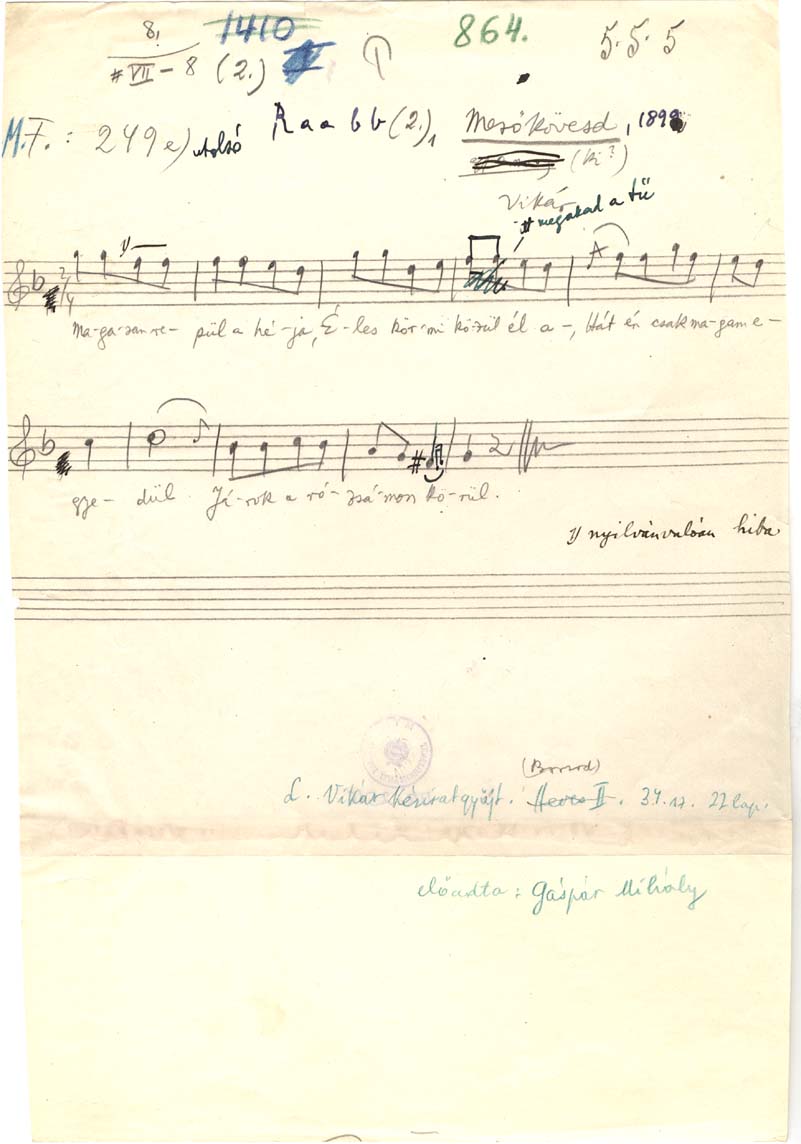 8.
1410
864.
5. 5. 5
# VII – 8 (2.)
M.F.: 249 e) utolsó Raabb (2.), Mezőkövesd, 1898
(ki?)
Vikár
# megakad a tű
1)
2/4
Ma-ga-san re- pül a hé-ja, É-les kör-mi közül él a-, Hát én csak ma-gam e-
gye- dül. Já-rok a ró- zsá-mon kö-rül.
1) nyilvánvalóan hiba
(Borsod)
L. Vikár kéziratgyűjt. Heves II. 34. sz. 22 lap.
előadta: Gáspár Mihály